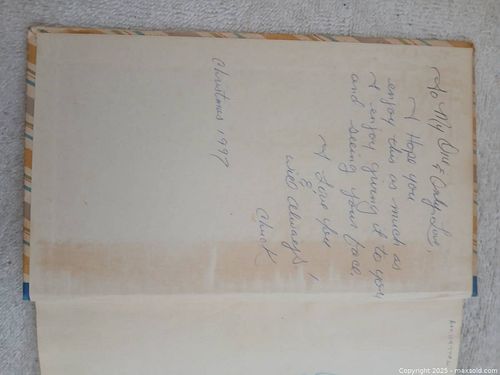 To My One & Only Love,
I Hope you
enjoy this as much as
I enjoy giving it to you
and seeing your face.
I Love you
&
will always!
Chuck
Christmas 1997
Copyright 2025 - maxsold.com